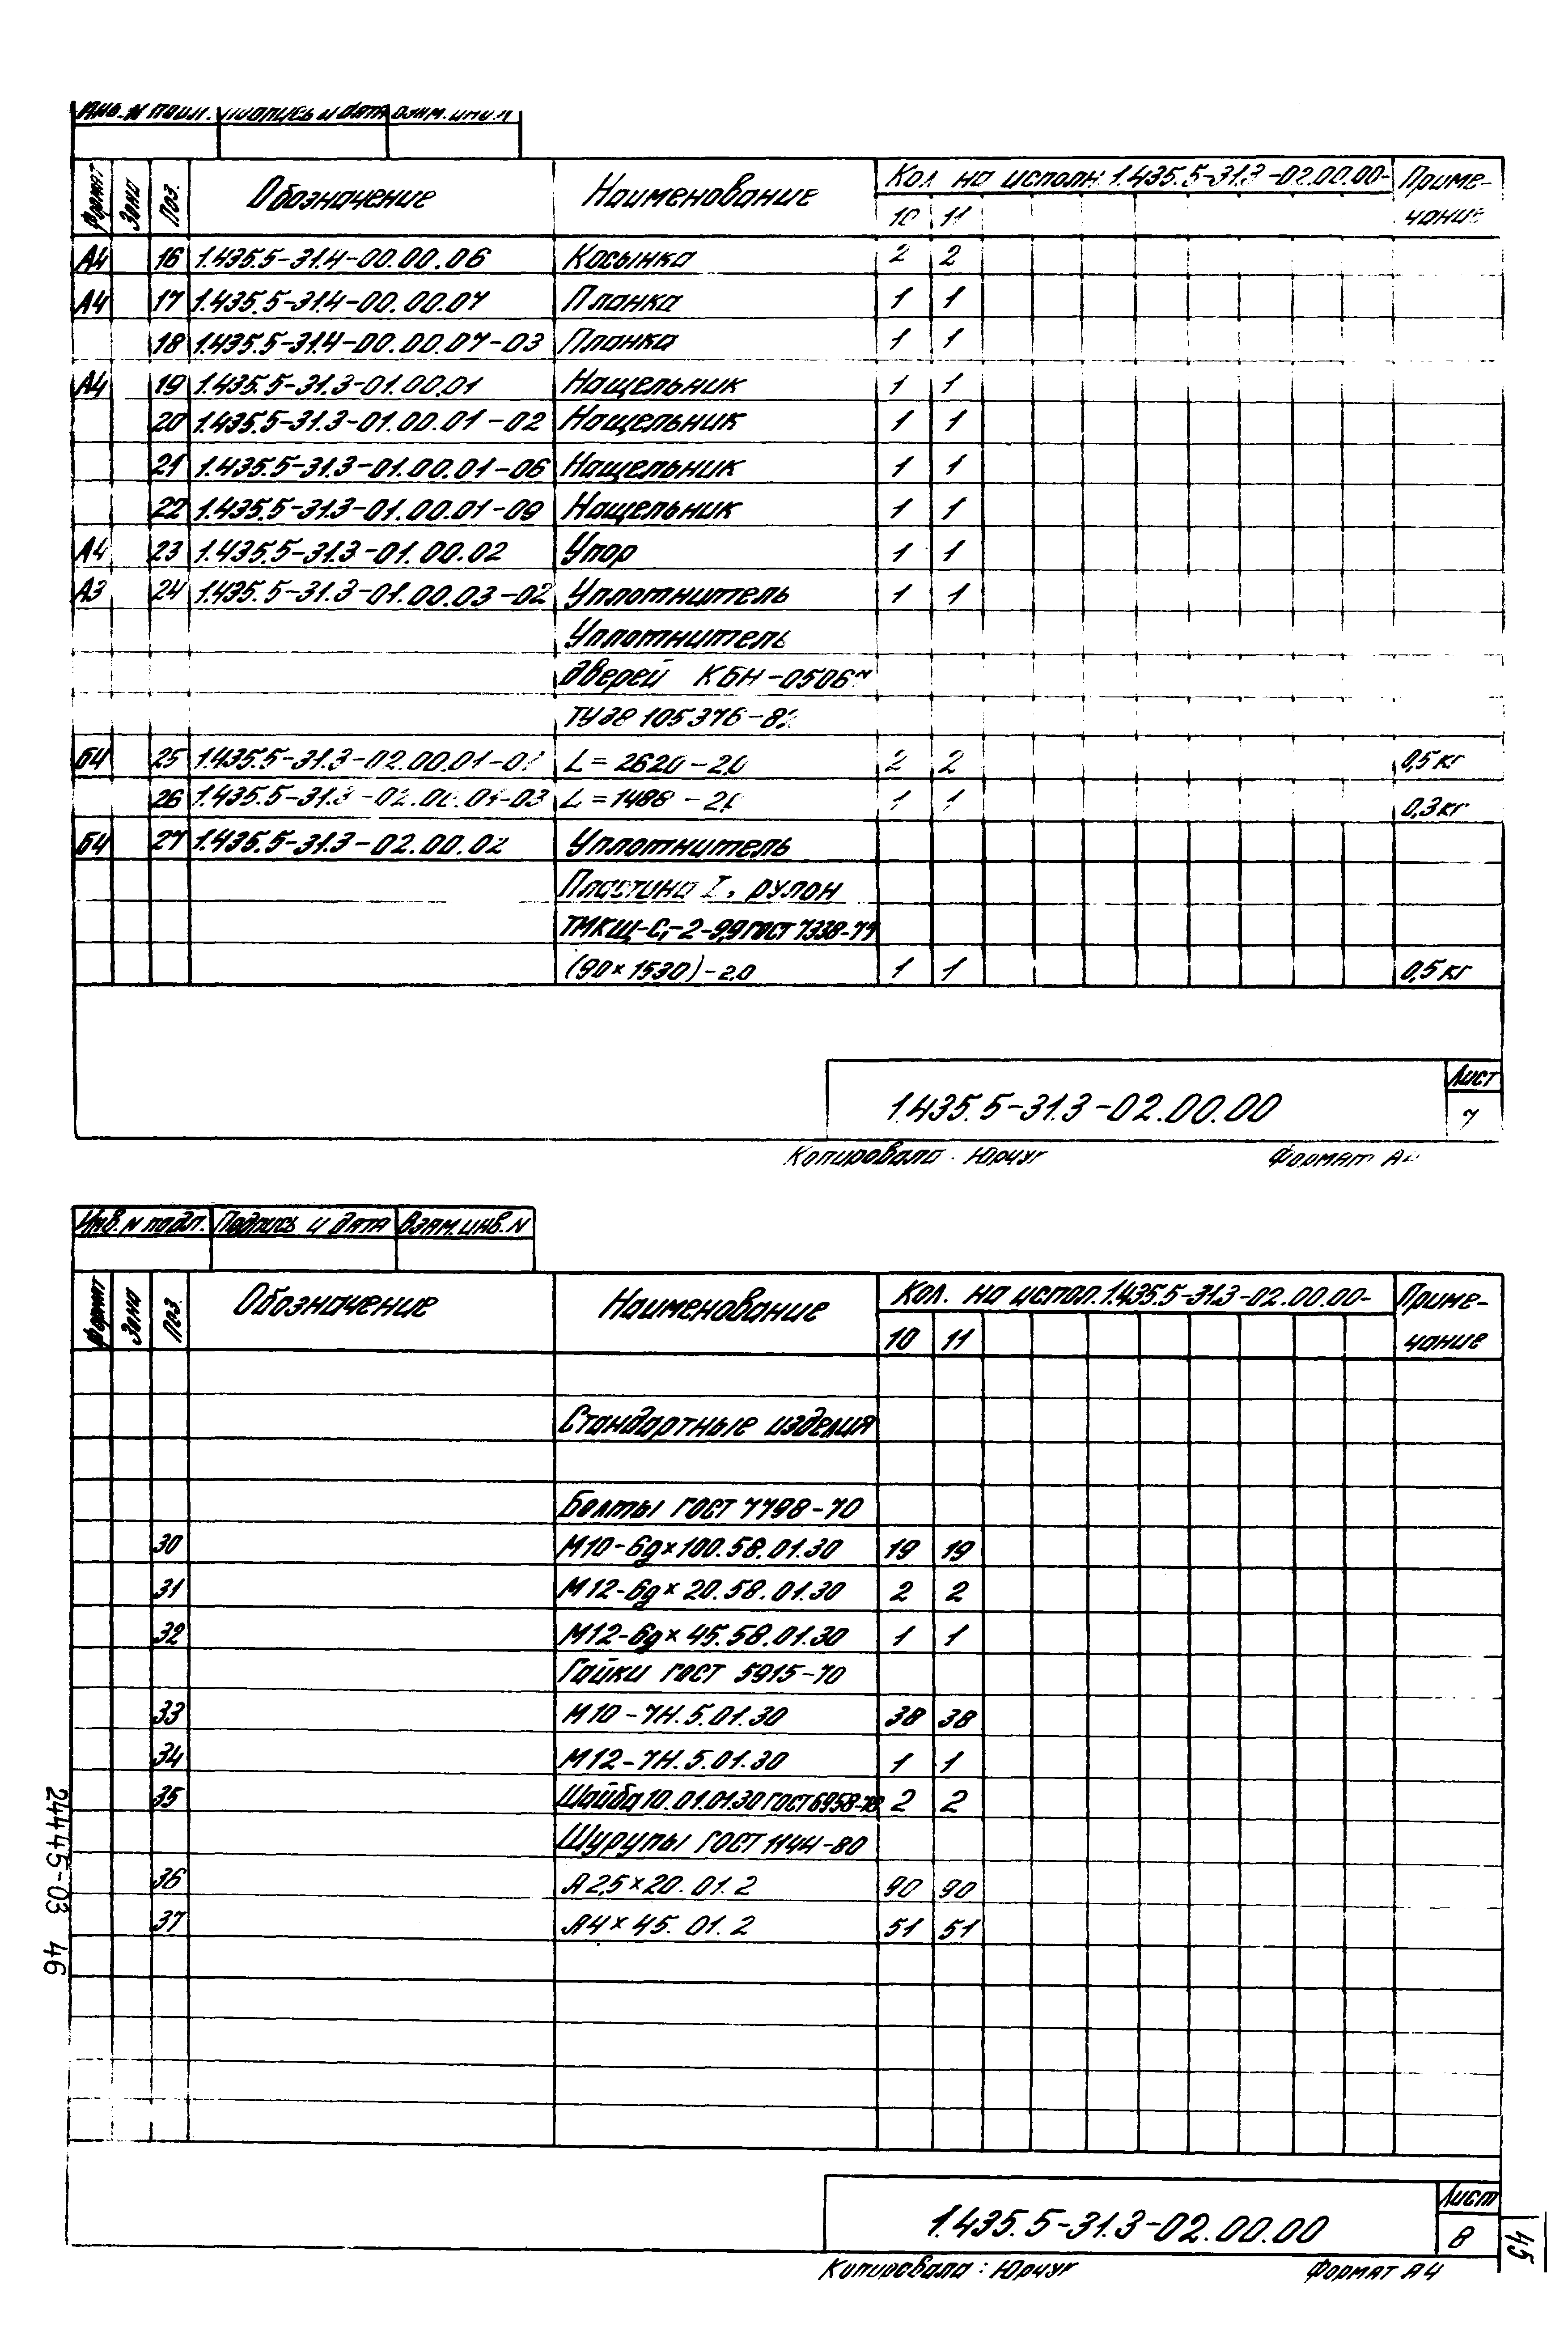 Инв. N подл. Подпись и дата Взам. инв. N
Формат Зона Поз. Обозначение Наименование Кол на исполн 1.435.5-31.3-02.00.00- Приме-
10 11 чание
А4 16 1.435.5-31.4-00.00.06 Косынка 2 2
А4 17 1.435.5-31.4-00.00.07 Планка 1 1
18 1.435.5-31.4-00.00.07-03 Планка 1 1
А4 19 1.435.5-31.3-01.00.01 Нащельник 1 1
20 1.435.5-31.3-01.00.01-02 Нащельник 1 1
21 1.435.5-31.3-01.00.01-06 Нащельник 1 1
22 1.435.5-31.3-01.00.01-09 Нащельник 1 1
А4 23 1.435.5-31.3-01.00.02 Упор 1 1
А3 24 1.435.5-31.3-01.00.03-02 Уплотнитель 1 1
Уплотнитель
дверей КБН-0506м
ТУ38 105376-82
Б4 25 L=2620-2.0 2 2 0,5кг
26 1.435.5-31.3-02.00.01-03 1 1 0,3кг
Б4 27 1.435.5-31.3-02.00.02 Уплотнитель
Пластина I, рулон
ТМКЩ-С,-2-9,9 ГОСТ 7338-77
(90×1530)-2.0 1 1 0,5кг
1.435.5-31.3-02.00.00
Лист
7
Копировала. Юрчук Формат А4
Инв. N подл. Подпись и дата Взам. инв. N
Формат Зона Поз. Обозначение Наименование Кол. на испол. 1.435.5-31.3-02.00.00- Приме-
10 11 чание
Стандартные изделия
Болты ГОСТ 7798-70
30 М10-6g×100.58.01.30 19 19
31 М12-6g×20.58.01.30 2 2
32 М12-6g×45.58.01.30 1 1
Гайки ГОСТ 5915-70
33 М10-7Н.5.01.30 38 38
34 М12-7Н.5.01.30 1 1
35 Шайба 10.01.01.30 ГОСТ 6958-78 2 2
Шурупы ГОСТ 1144-80
36 А2,5×20.01.2 90 90
37 А4×45.01.2 51 51
24445-03 46
1.435.5-31.3-02.00.00
Лист
8
45
Копировала: Юрчук Формат А4